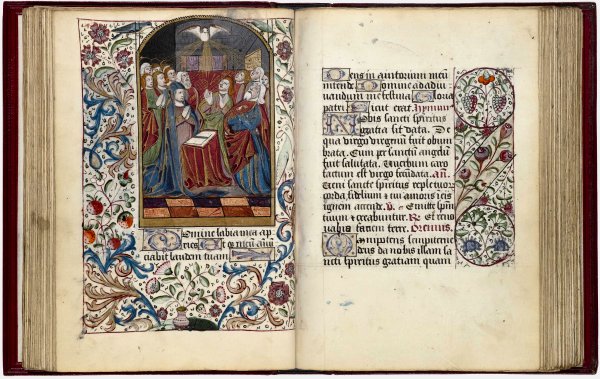 Domine labia mea ape
ries Et os meū anū
ciabit laudem tuam
Deus in adiutorium meū
intende Domine ad adiu
uandum me festina Gloria
patri Sicut erat. hymnus
Nobis sancti spiritus
gratia sit data. De
qua virgo virginū fuit obum
brata. Cum per sanctū angelū
fuit salutata. Uerbum caro
factum est virgo fecūdata. añ.
Ueni sancte spiritus reple tuor
corda fidelium et tui amoris ī eis
ignem accende. v. Emitte spiri
tuum et creabuntur. Re Et reno
uabis faciem terre. Oremus.
Omnipotens sempiterne
deus da nobis illam sa
ncti spiritus gratiam quam